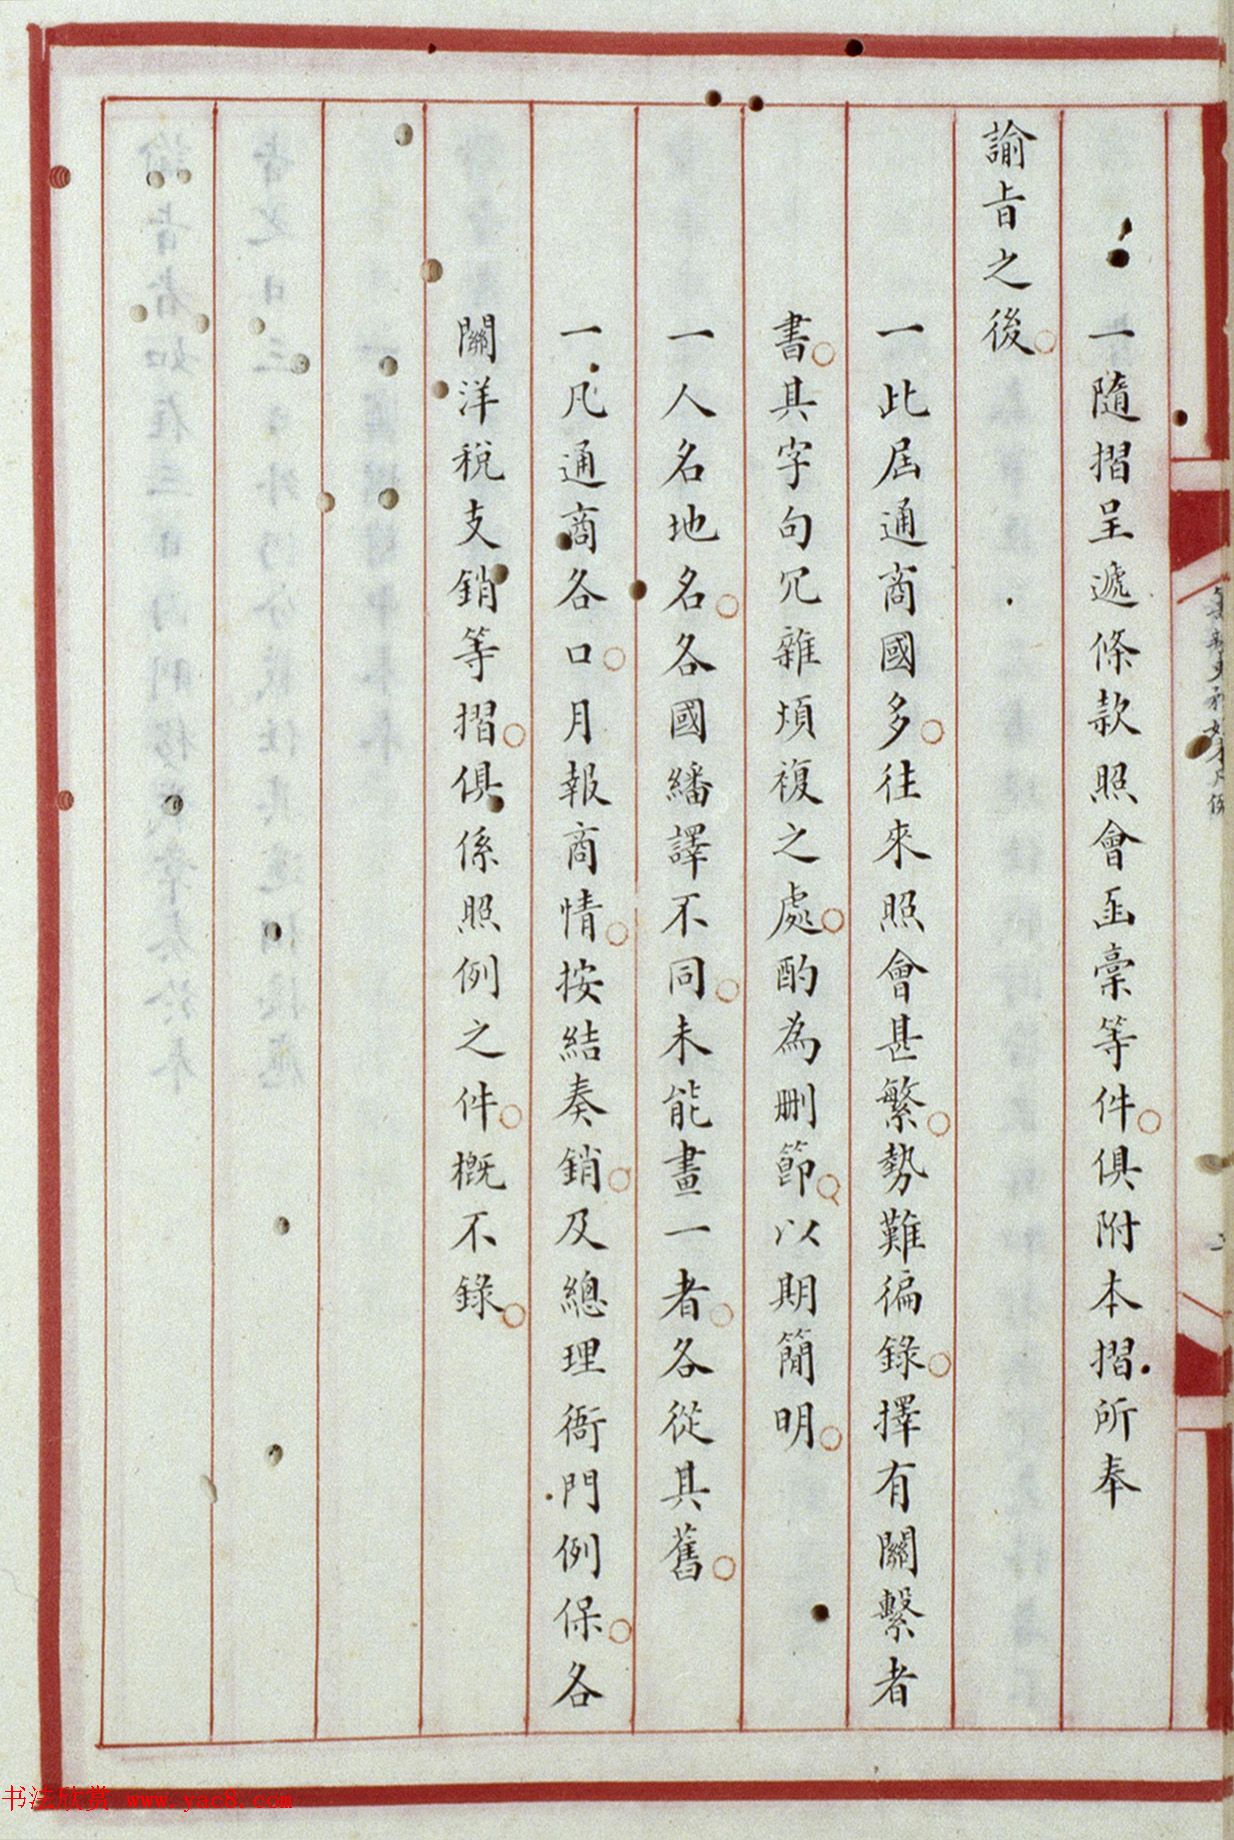 一隨摺呈遞條款照會函稾等件俱附本摺所奉
諭旨之後
一此屆通商國多往來照會甚繁勢難徧錄擇有關繫者
書其字句冗雜煩複之處酌為刪節以期簡明
一人名地名各國繙譯不同未能畫一者各從其舊
一凡通商各口月報商情按結奏銷及總理衙門例保各
關洋稅支銷等摺俱係照例之件概不錄
书法欣赏 www.yac8.com